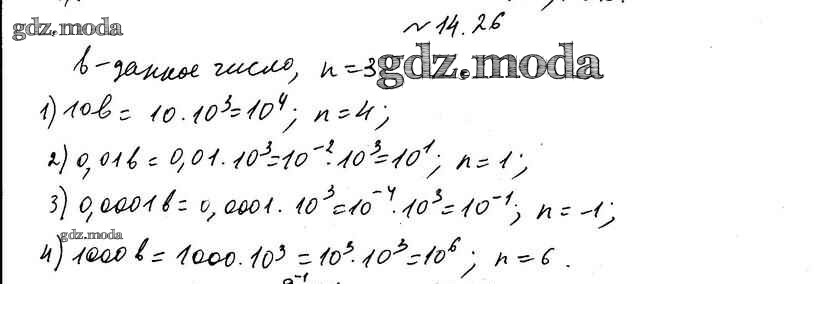 №14.26
gdz.moda
b-данное число, n=3
gdz.moda
1) 10b = 10·10³=10⁴; n=4;
2) 0,01b = 0,01·10³=10⁻²·10³=10¹; n=1;
3) 0,0001b = 0,0001·10³=10⁻⁴·10³=10⁻¹; n=-1;
gdz.moda
4) 1000b = 1000·10³=10³·10³=10⁶; n=6.